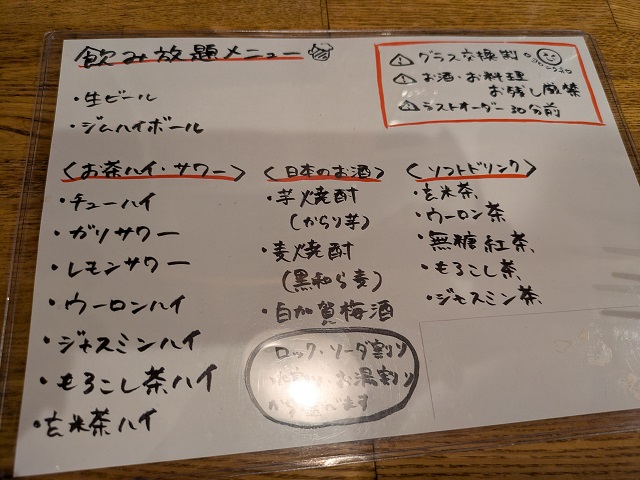 飲み放題メニュー
・生ビール
・ジムハイボール
⚠ グラス交換制
⚠ お酒・お料理
お残し厳禁
⚠ ラストオーダー 30分前
〈お茶ハイ・サワー〉
・チューハイ
・ガリサワー
・レモンサワー
・ウーロンハイ
・ジャスミンハイ
・もろこし茶ハイ
・玄米茶ハイ
〈日本のお酒〉
・芋焼酎
(からり芋)
・麦焼酎
(黒和ら麦)
・自加賀梅酒
ロック・ソーダ割り
水割り・お湯割り
から選べます
〈ソフトドリンク〉
・玄米茶
・ウーロン茶
・無糖紅茶
・もろこし茶
・ジャスミン茶